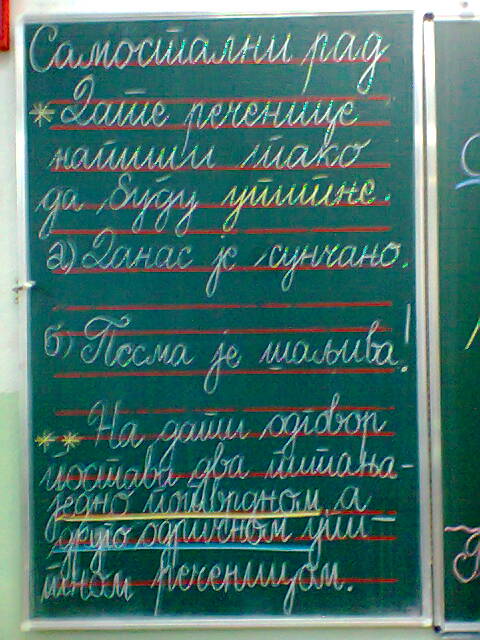 Самостални рад
* Дате реченице
напиши тако
да буду упитне.
а) Данас је сунчано.
б) Песма је шаљива!
** На дати одговор
постави два питања –
једно потврдном а
друго одричном упи-
тном реченицом.